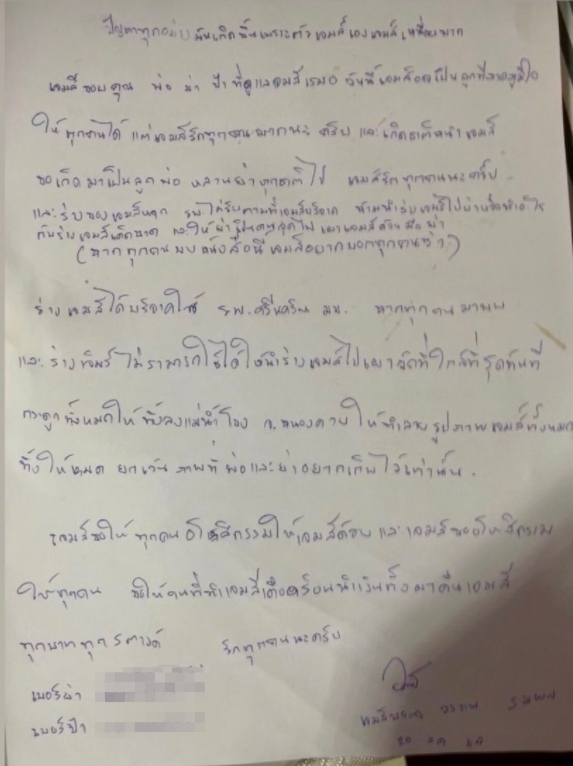 ปัญหาทุกอย่างมันเกิดขึ้นเพราะตัวเจมส์เองเจมส์เหนื่อยมาก
เจมส์ขอบคุณ พ่อ ย่า ป้า ที่ดูแลเจมส์เสมอ วันนี้เจมส์อาจเป็นลูกที่ภาคภูมิใจ
ให้ทุกคนได้ แต่เจมส์รักทุกคนมากนะครับ และเกิดชาติหน้า เจมส์
ขอเกิดมาเป็นลูกพ่อ หลานย่าทุกชาติไป เจมส์รักทุกคนนะครับ
และร่างของเจมส์หาก รพ.ได้รับตามที่เจมส์บริจาค
กับร่างเจมส์เด็ดขาด เจมส์ด้วยมือย่า
(หากทุกคนพบหนังสือนี้เจมส์อยากบอกทุกคนว่า)
ร่างเจมส์ได้บริจาคให้ รพ.ศรีนครินทร์ มข. หากทุกคนมาพบ
และร่างเจมส์ไม่สามารถใช้ได้ให้นำร่างเจมส์ไปเผาวัดที่ใกล้ที่สุดทันที
กระดูกทั้งหมดให้ทิ้งลงแม่น้ำโขง จ.หนองคาย ให้ทำลายรูปภาพเจมส์ทั้งหมด
ทิ้งให้หมด ยกเว้น ภาพที่พ่อและย่าอยากเก็บไว้เท่านั้น.
เจมส์ขอให้ทุกคนอโหสิกรรมให้เจมส์ด้วย และเจมส์ขออโหสิกรรม
ให้ทุกคน ขอให้คนที่ทำเจมส์เดือดร้อนนำเงินทั้งมาคืนเจมส์
ทุกบาททุกสตางค์ รักทุกคนนะครับ
เบอร์ย่า
เบอร์ป้า